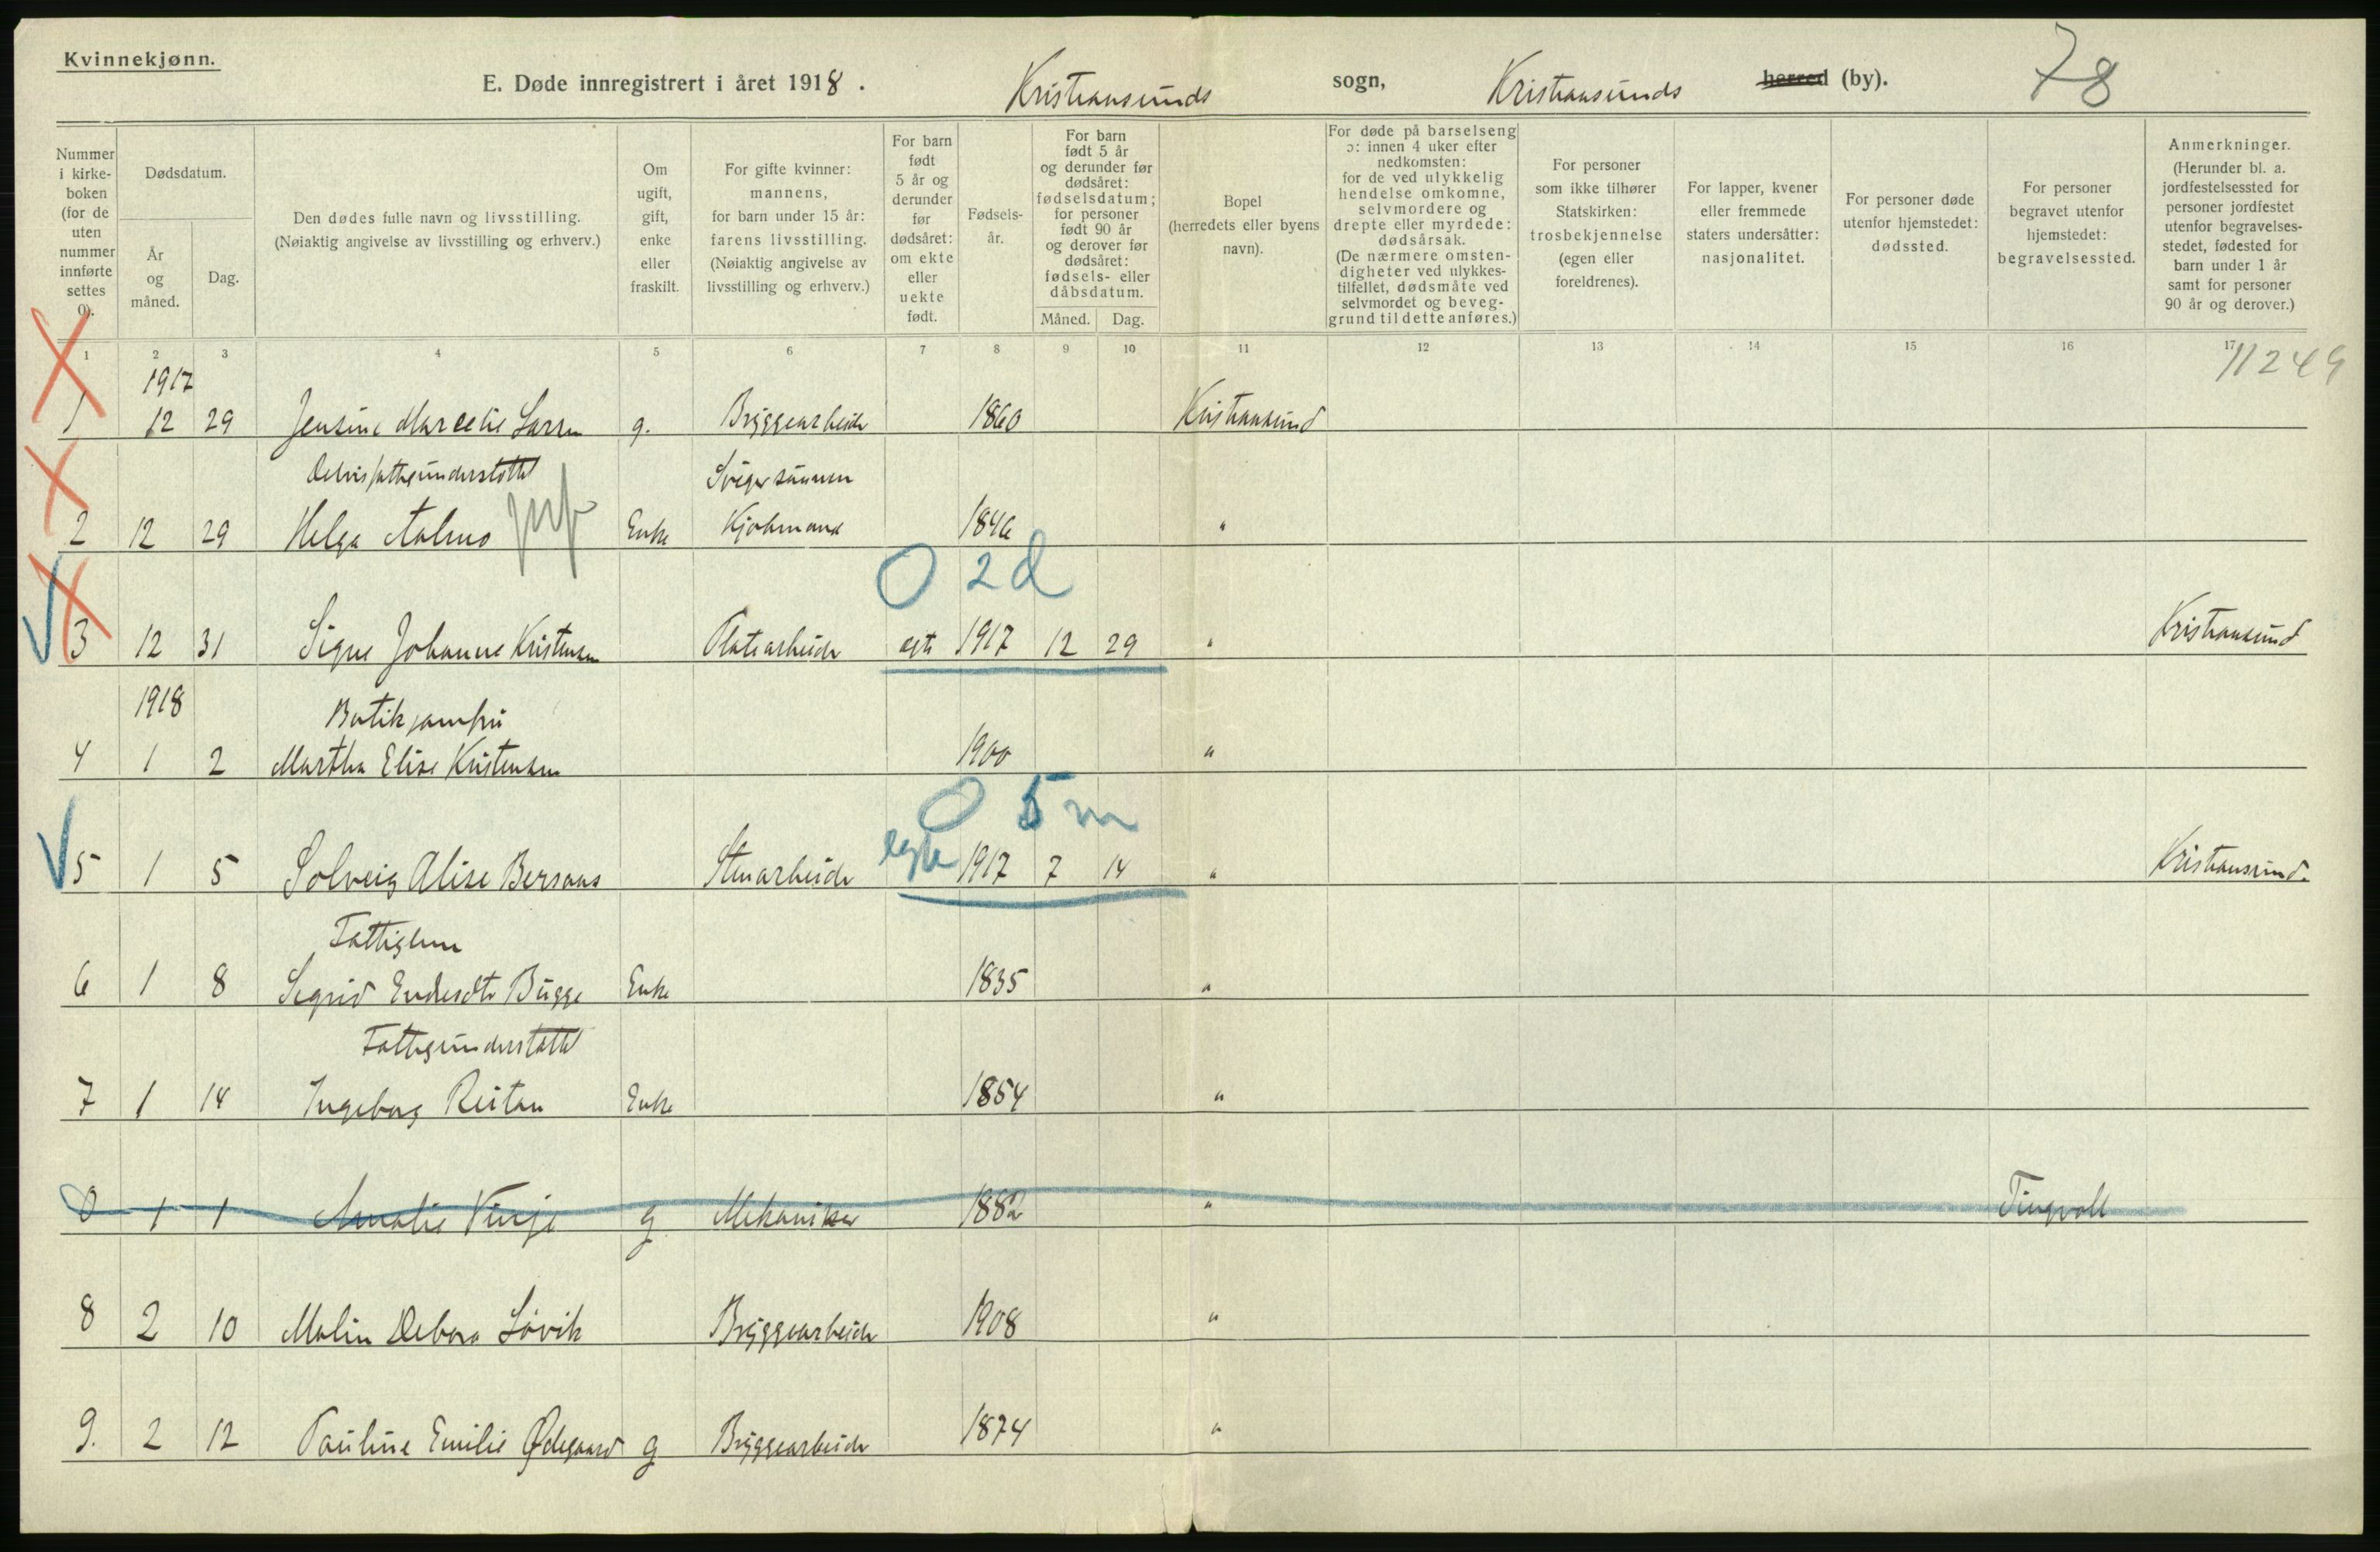 Kvinnekjønn.
E. Døde innregistrert i året 1918. Kristiansunds sogn, Kristiansunds herred (by). 78
Nummer i kirkeboken (for de uten nummer innførte settes 0).
Dødsdatum.
År og måned.
Dag.
Den dødes fulle navn og livsstilling. (Nøiaktig angivelse av livsstilling og erhverv.)
Om ugift, gift, enke eller fraskilt.
For gifte kvinner: mannens, for barn under 15 år: farens livsstilling. (Nøiaktig angivelse av livsstilling og erhverv.)
For barn født 5 år og derunder før dødsåret: om ekte eller uekte født.
Fødsels-år.
For barn født 5 år og derunder før dødsåret: fødselsdatum; for personer født 90 år og derover før dødsåret: fødsels- eller dåbsdatum.
Måned. Dag.
Bopel (herredets eller byens navn).
For døde på barselseng ɔ: innen 4 uker efter nedkomsten: for de ved ulykkelig hendelse omkomne, selvmordere og drepte eller myrdede: dødsårsak. (De nærmere omstendigheter ved ulykkestilfellet, dødsmåte ved selvmordet og beveggrund til dette anføres.)
For personer som ikke tilhører Statskirken: trosbekjennelse (egen eller foreldrenes).
For lapper, kvener eller fremmede staters undersåtter: nasjonalitet.
For personer døde utenfor hjemstedet: dødssted.
For personer begravet utenfor hjemstedet: begravelsessted.
Anmerkninger. (Herunder bl. a. jordfestelsessted for personer jordfestet utenfor begravelsesstedet, fødested for barn under 1 år samt for personer 90 år og derover.)
1 2 3 4 5 6 7 8 9 10 11 12 13 14 15 16 17
11249
1917
1 12 29 Jensine Marcelie Larsen g. Bryggearbeider 1860 Kristiansund
Delvis fattigunderstøttet Svigersønnen
2 12 29 Helga Aalmo Enke Kjøbmand 1846 "
0 2 d
3 12 31 Signe Johanne Kristensen Platsarbeider egte 1917 12 29 " Kristiansund
1918 Butikjomfru
4 1 2 Martha Elise Kristensen 1900 "
0 5 m
5 1 5 Solveig Alise Bersaas Stenarbeider egte 1917 7 14 " Kristiansund.
Fattiglem
6 1 8 Sigrid Endresdtr Bugge Enke 1835 "
Fattigunderstøttet
7 1 14 Ingeborg Reitan Enke 1854 "
0 1 1 Amalie Vinje g Mekaniker 1882 " Tingvoll
8 2 10 Malin Debora Løvik Bryggearbeider 1908 "
9. 2 12 Pauline Emilie Ødegaard g Bryggearbeider 1874 "